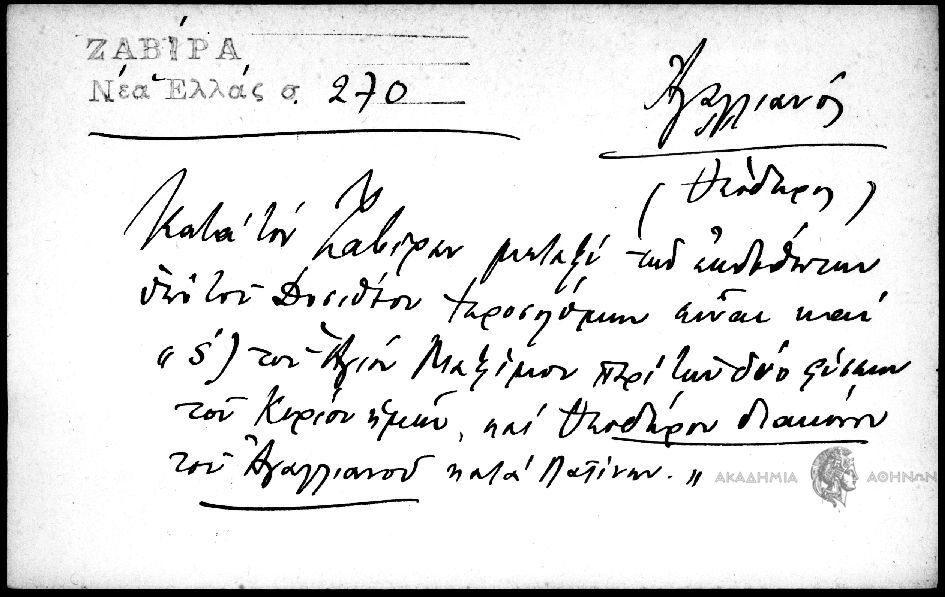 ΖΑΒΙΡΑ
Νέα Ἑλλάς σ. 270
Ἀγαλλιανός
(Θεόδωρος)
Κατά τόν Ζαβίραν μεταξύ τῶν ἐκδοθέντων
ὑπό τοῦ Δοσιθέου Ἱεροσολύμων εἶναι καί
"ς) τοῦ Ἁγίου Μαξίμου περί τῶν δύο φύσεων
τοῦ Κυρίου ἡμῶν, καί Θεοδώρου διακόνου
τοῦ Ἀγαλλιανοῦ κατά Λατίνων."
ΑΚΑΔΗΜΙΑ ΑΘΗΝΩΝ